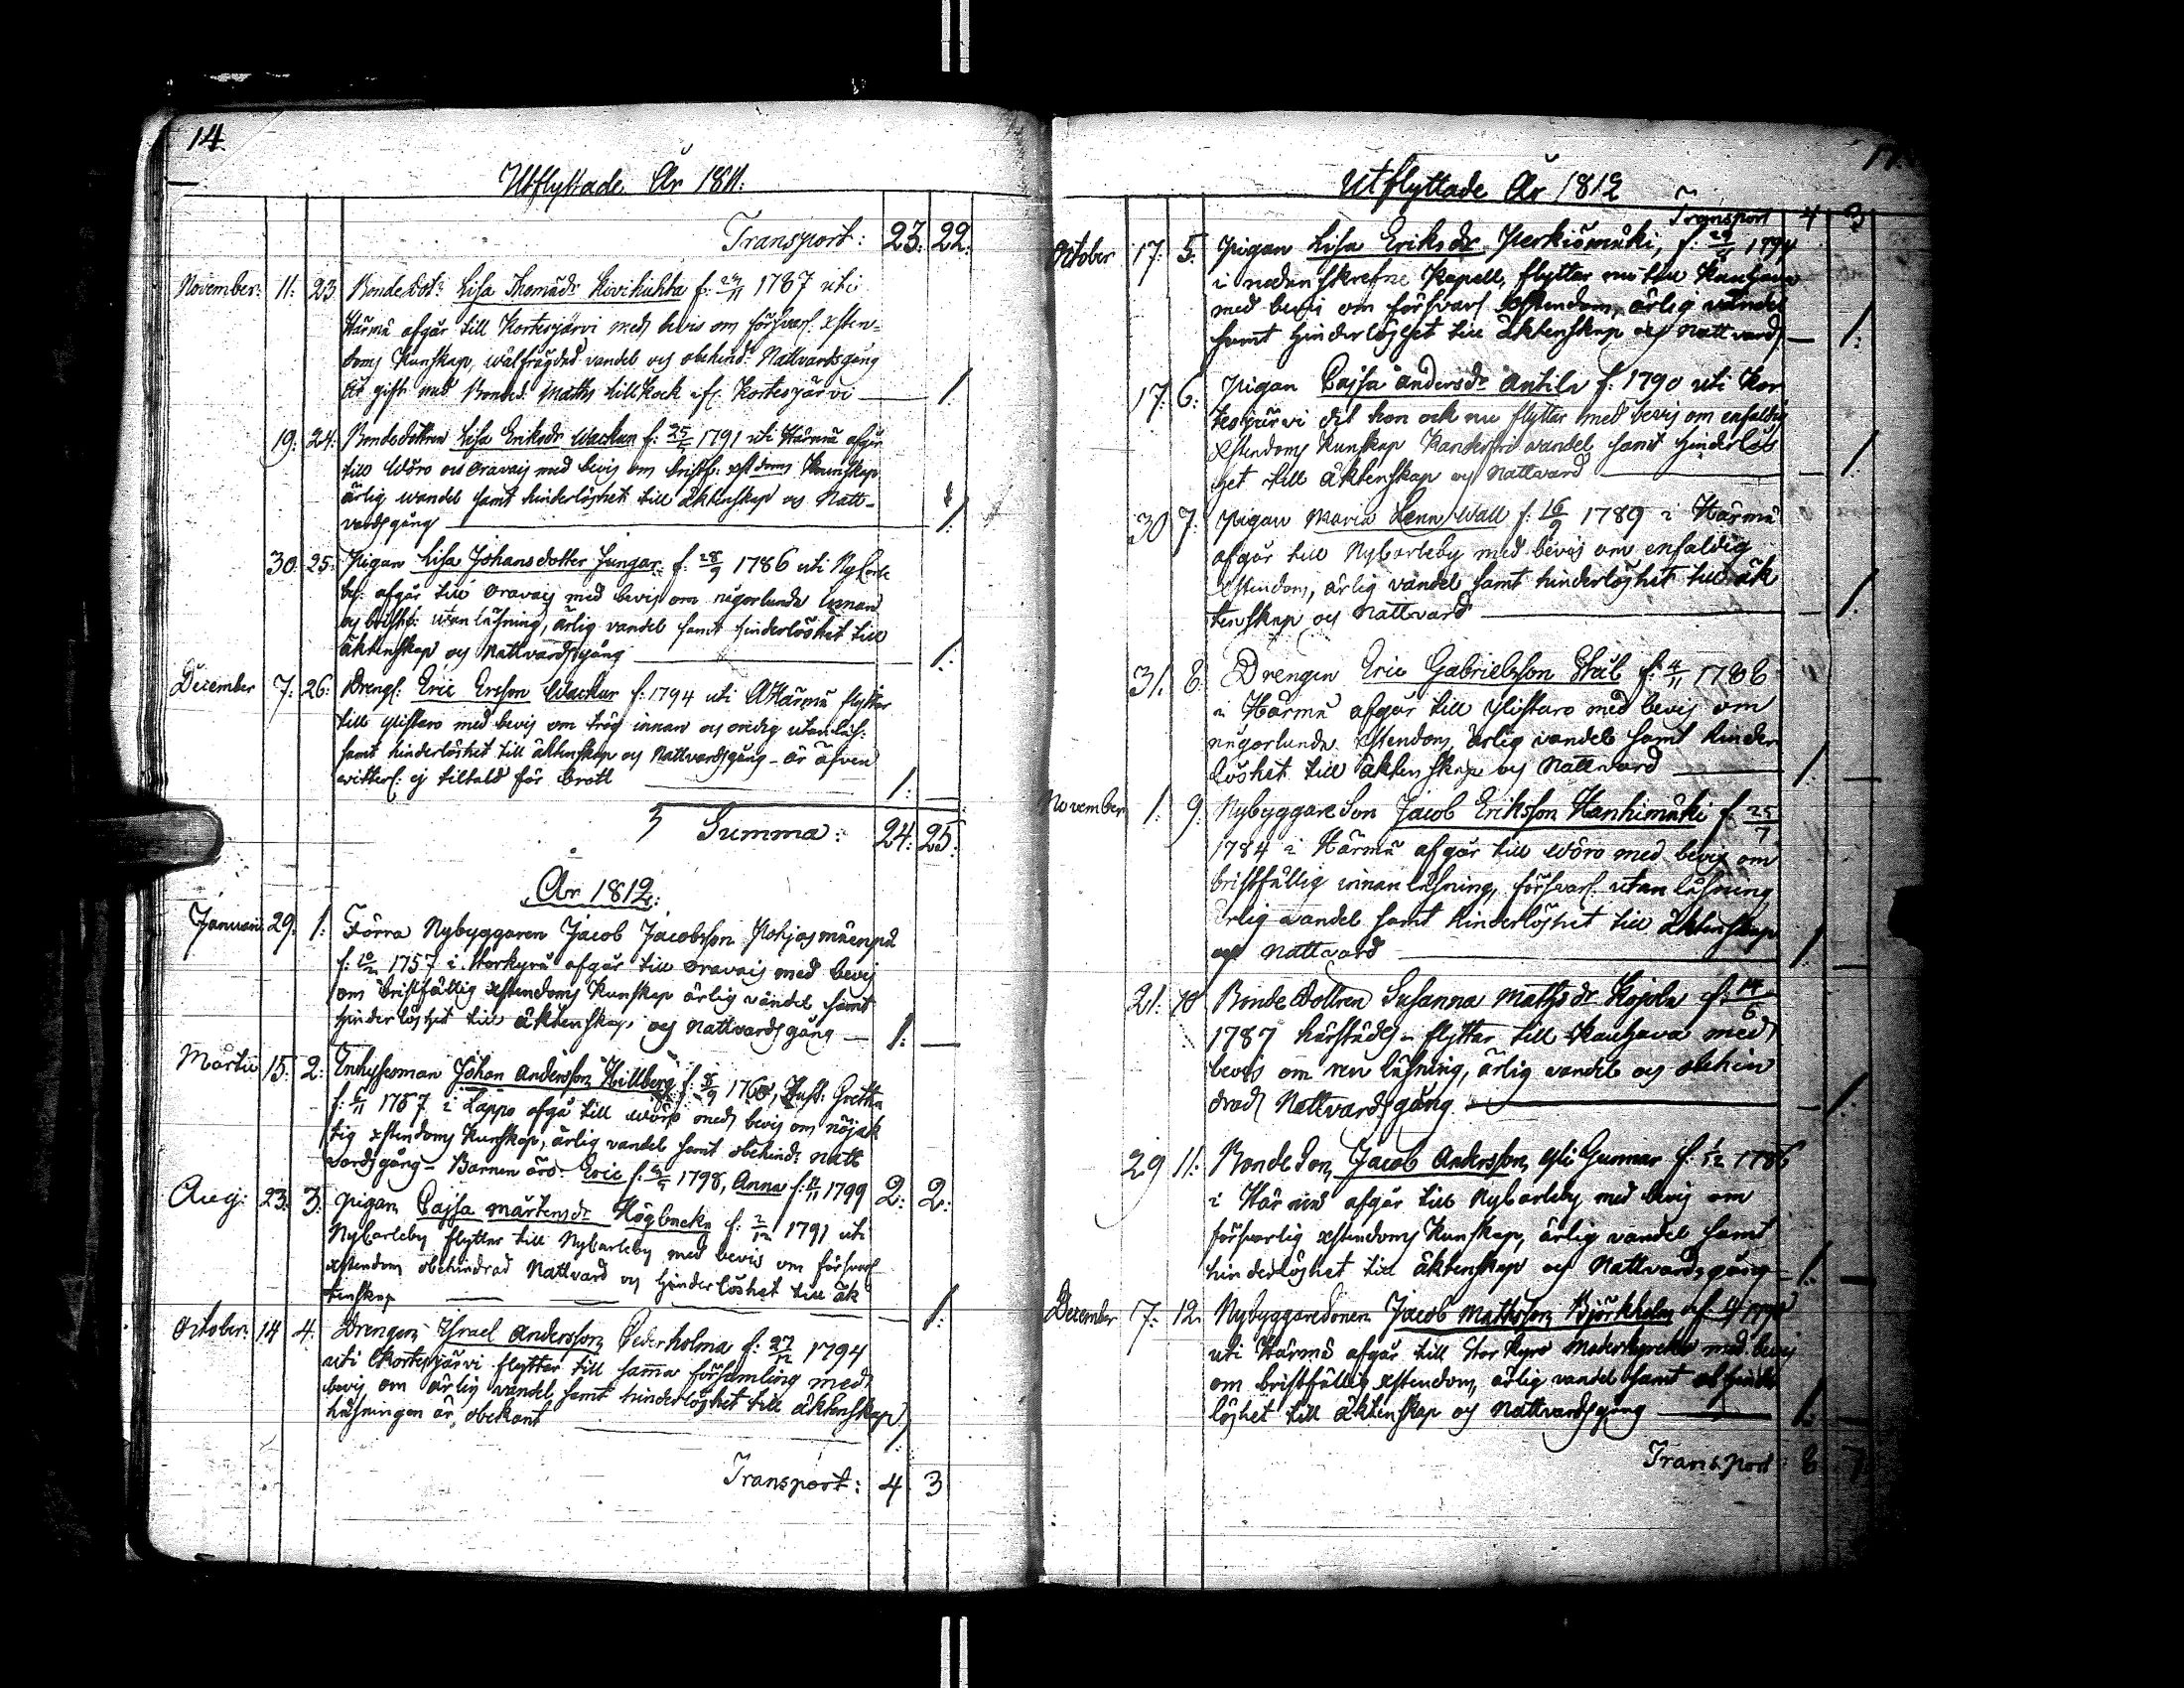 14.
Utflyttade År 1811.
Transport: 23. 22.
November: 11: 23. Bondedot: Lisa Thomasdr Kivikukka f: 1787 uti
Härmä afgår till Kortesjärvi med bevis om försvarl. xsten-
doms Kunskap, wälfrägdad vandel och obehind: Nattvardsgång
är gift med Bonded: Matts Kock i Kortesjärvi — 1.
19: 24: Bondedottren Lisa Eriksdr Wackur f: 25/ 1791 uti Härmä afgår
till Wörå och Oravais med bevis om bristf: xstdoms Kunskap
ärlig wandel samt hinderlöshet till äktenskap och Natt-
vardsgång — 1.
30. 25: Pigan Lisa Johansdotter Jungar f. 28/9 1786 uti Nycarle
by: afgår till Oravais med bevis om någorlunda innan
och bristf: utanläsning, ärlig vandel samt hinderlöshet till
äktenskap och Nattvardsgång — 1.
December 7: 26: Drengs: Eric Ersson Wackur f: 1794 uti Härmä flyttar
till Ylistaro med bevis om trög innan och utanläs:
samt hinderlöshet till äktenskap och Nattvardsgång – är äfven
ej tiltald för brott — 1. —
Summa: 24: 25:
År 1812:
Januari 29: 1: Förra Nybyggaren Jacob Jacobsson Pohjasmäenpä
f: 1757 i Storkyrå afgår till Oravais med bevis
om bristfällig xstendoms Kunskap ärlig vandel samt
hinderlöshet till äktenskap och nattvardsgång — 1: —
Martii 15: 2: Johan Andersson Hillberg f: 8/9 1760, Hust: Greta
f: 6/11 1757 i Lappo afgå till Wörå med bevis om nöjak
tig xstendoms Kunskap, ärlig vandel samt obehind: natt
vardsgång – Barnen äro: Eric f: 1798, Anna f: 1799 2: 2:
Aug: 23: 3: Pigan Cajsa Mårtensdr Högbacka f: 2/12 1791 uti
Nycarleby flyttar till Nycarleby med bevis om försvarl
xstendom obehindrad Nattvard och hinderlöshet till äk
tenskap — 1:
October: 14 4. Drengen Israel Andersson Cederholma f: 27/12 1794
uti Kortesjärvi flyttar till samma församling med
bevis om ärlig vandel samt hinderlöshet till äktenskap,
läsningen är obekant — 1.
Transport: 4 3
Utflyttade År 1812
Transport 4 3
October 17: 5: Pigan Lisa Eriksdr Perkiömäki, f: 1794
i nedanskrefne Kapell, flyttar nu till Kauhava
med bevis om försvarl xstendom, ärlig vandel
samt hinderlöshet till äktenskap och nattvard — 1:
17: 6: Pigan Cajsa Andersdr Antila f: 1790 uti Kor
tesjärvi dit hon ock nu flyttar med bevis om enfaldig
xstendoms Kunskap klanderfri vandel samt hinderlös
het till äktenskap och Nattvard — 1.
30 7: Pigan Maria Wall f: 16/9 1789 i Härmä
afgår till Nycarleby med bevis om enfaldig
xstendom, ärlig vandel samt hinderlöshet till äk
tenskap och nattvard — 1.
31. 8. Drengen Eric Gabrielsson Stål f: 4/11 1786
i Härmä afgår till Ylistaro med bevis om
någorlunda xstendom, ärlig vandel samt hinder
löshet till äktenskap och Nattvard — 1. —
November 1: 9: Nybyggare Son Jacob Eriksson Hanhimäki f: 25/7
1784 i Härmä afgår till Wörå med bevis om
bristfällig innanläsning, försvarl. utanläsning
ärlig vandel samt hinderlöshet till äktenskap
och nattvard — 1. —
21. 10 Bonde Dottren Susanna Mathsdr Kojola f: 14/6
1787 härstädes flyttar till Kauhava med
bevis om ren läsning, ärlig vandel och obehin
drad Nattvardsgång — 1.
29 11: Bonde Son Jacob Andersson Gunnar f: 1/12 1786
i Härmä afgår till Nycarleby med bevis om
försvarlig xstendoms Kunskap, ärlig vandel samt
hinderlöshet till äktenskap och Nattvardsgång — 1. —
December 7: 12. Nybyggaresonen Jacob Mathsson Björkholm
uti Härmä afgår till Stor Kyro Moderkyrka med bevis
om bristfällig xstendom, ärlig vandel samt
löshet till äktenskap och Nattvardsgång — 1. —
Transport 8 7